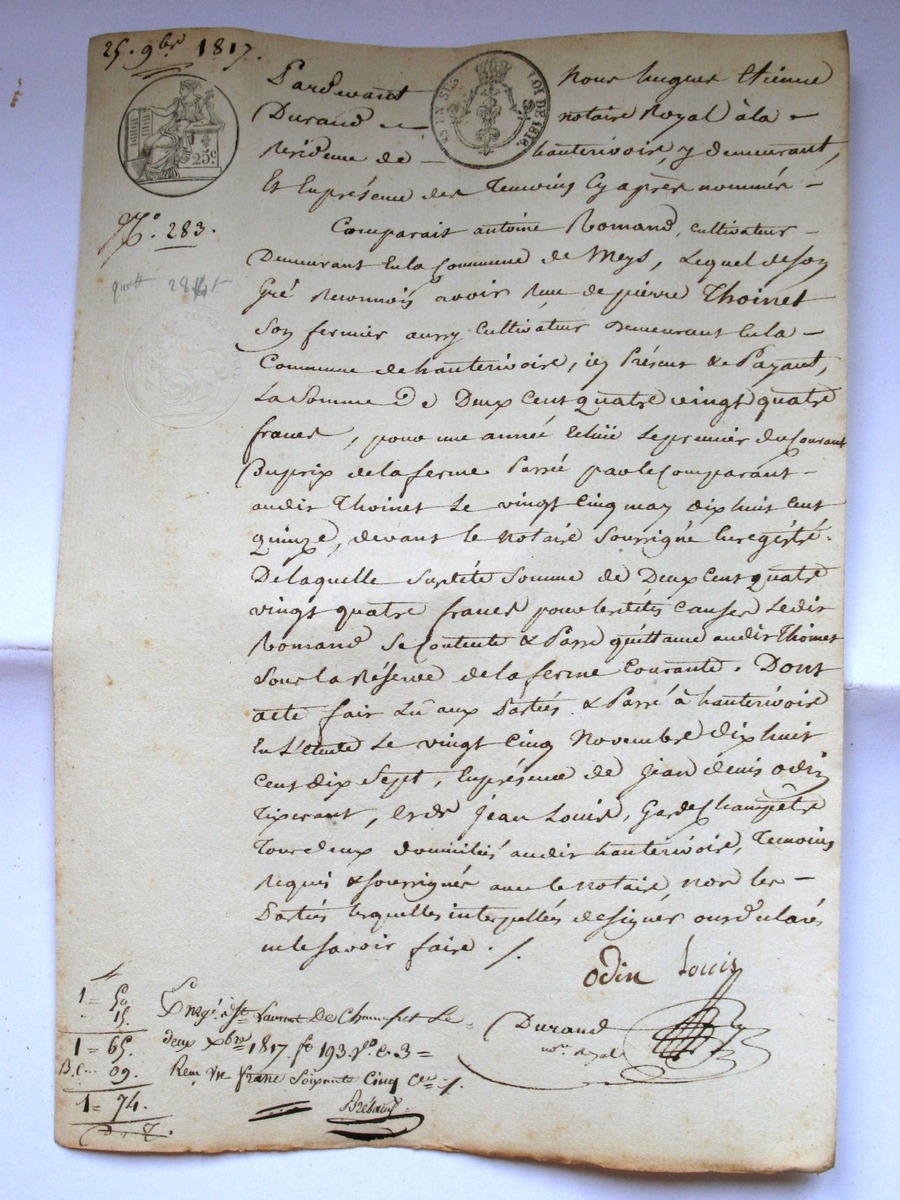 25. 9bre 1817.
25c
EN SUS
LOI DE 1816.
Pardevant Nous hugues Etienne
Durand notaire Royal à la
Résidence de hauterivoire, y demeurant,
Et En présence des Temoins Cy après nommés
No. 283.
Comparait antoine Romand, cultivateur
Demeurant En la Commune de Meys, Lequel de son
Gré Reconnois avoir Reçu de pierre Thoinet
Son fermier aussy Cultivateur Demeurant En la
Commune de hauterivoire, icy Présent & Payant,
La Somme de Deux Cent quatre vingt quatre
francs, pour une année Echüe Le premier du Courant
Du prix de la ferme Passée par le Comparant
audit Thoinet Le vingt Cinq may dix huit Cent
quinze, devant le notaire Soussigné Enregistré.
De laquelle Susditte Somme de Deux Cent quatre
vingt quatre francs pour les dittes Causes Ledit
Romand Se Contente & Passe quittance audit Thoinet
Sous la Réserve de la ferme Courante. Dont
acte fait Lu aux Parties & Passé à hauterivoire
En L'étude Le vingt Cinq Novembre dix huit
Cent dix Sept, En présence de Jean denis odin
Tixerant, et de Jean Louis, Garde Champêtre
Tous deux domiciliés audit hauterivoire, Temoins
Requis & Soussignés avec le notaire, non les
Parties lesquelles interpellées de signer ont déclaré
ne le savoir faire.
odin Louis
Durand
nore Royal
1 = 50
15.
1 = 65.
B.C. 09.
1 = 74.
Enrgé. à St Laurent De Chamousset Le
deux Xbre 1817 fo 193 Vo c. 3 =
Reçu Un franc Soixante Cinq Cen